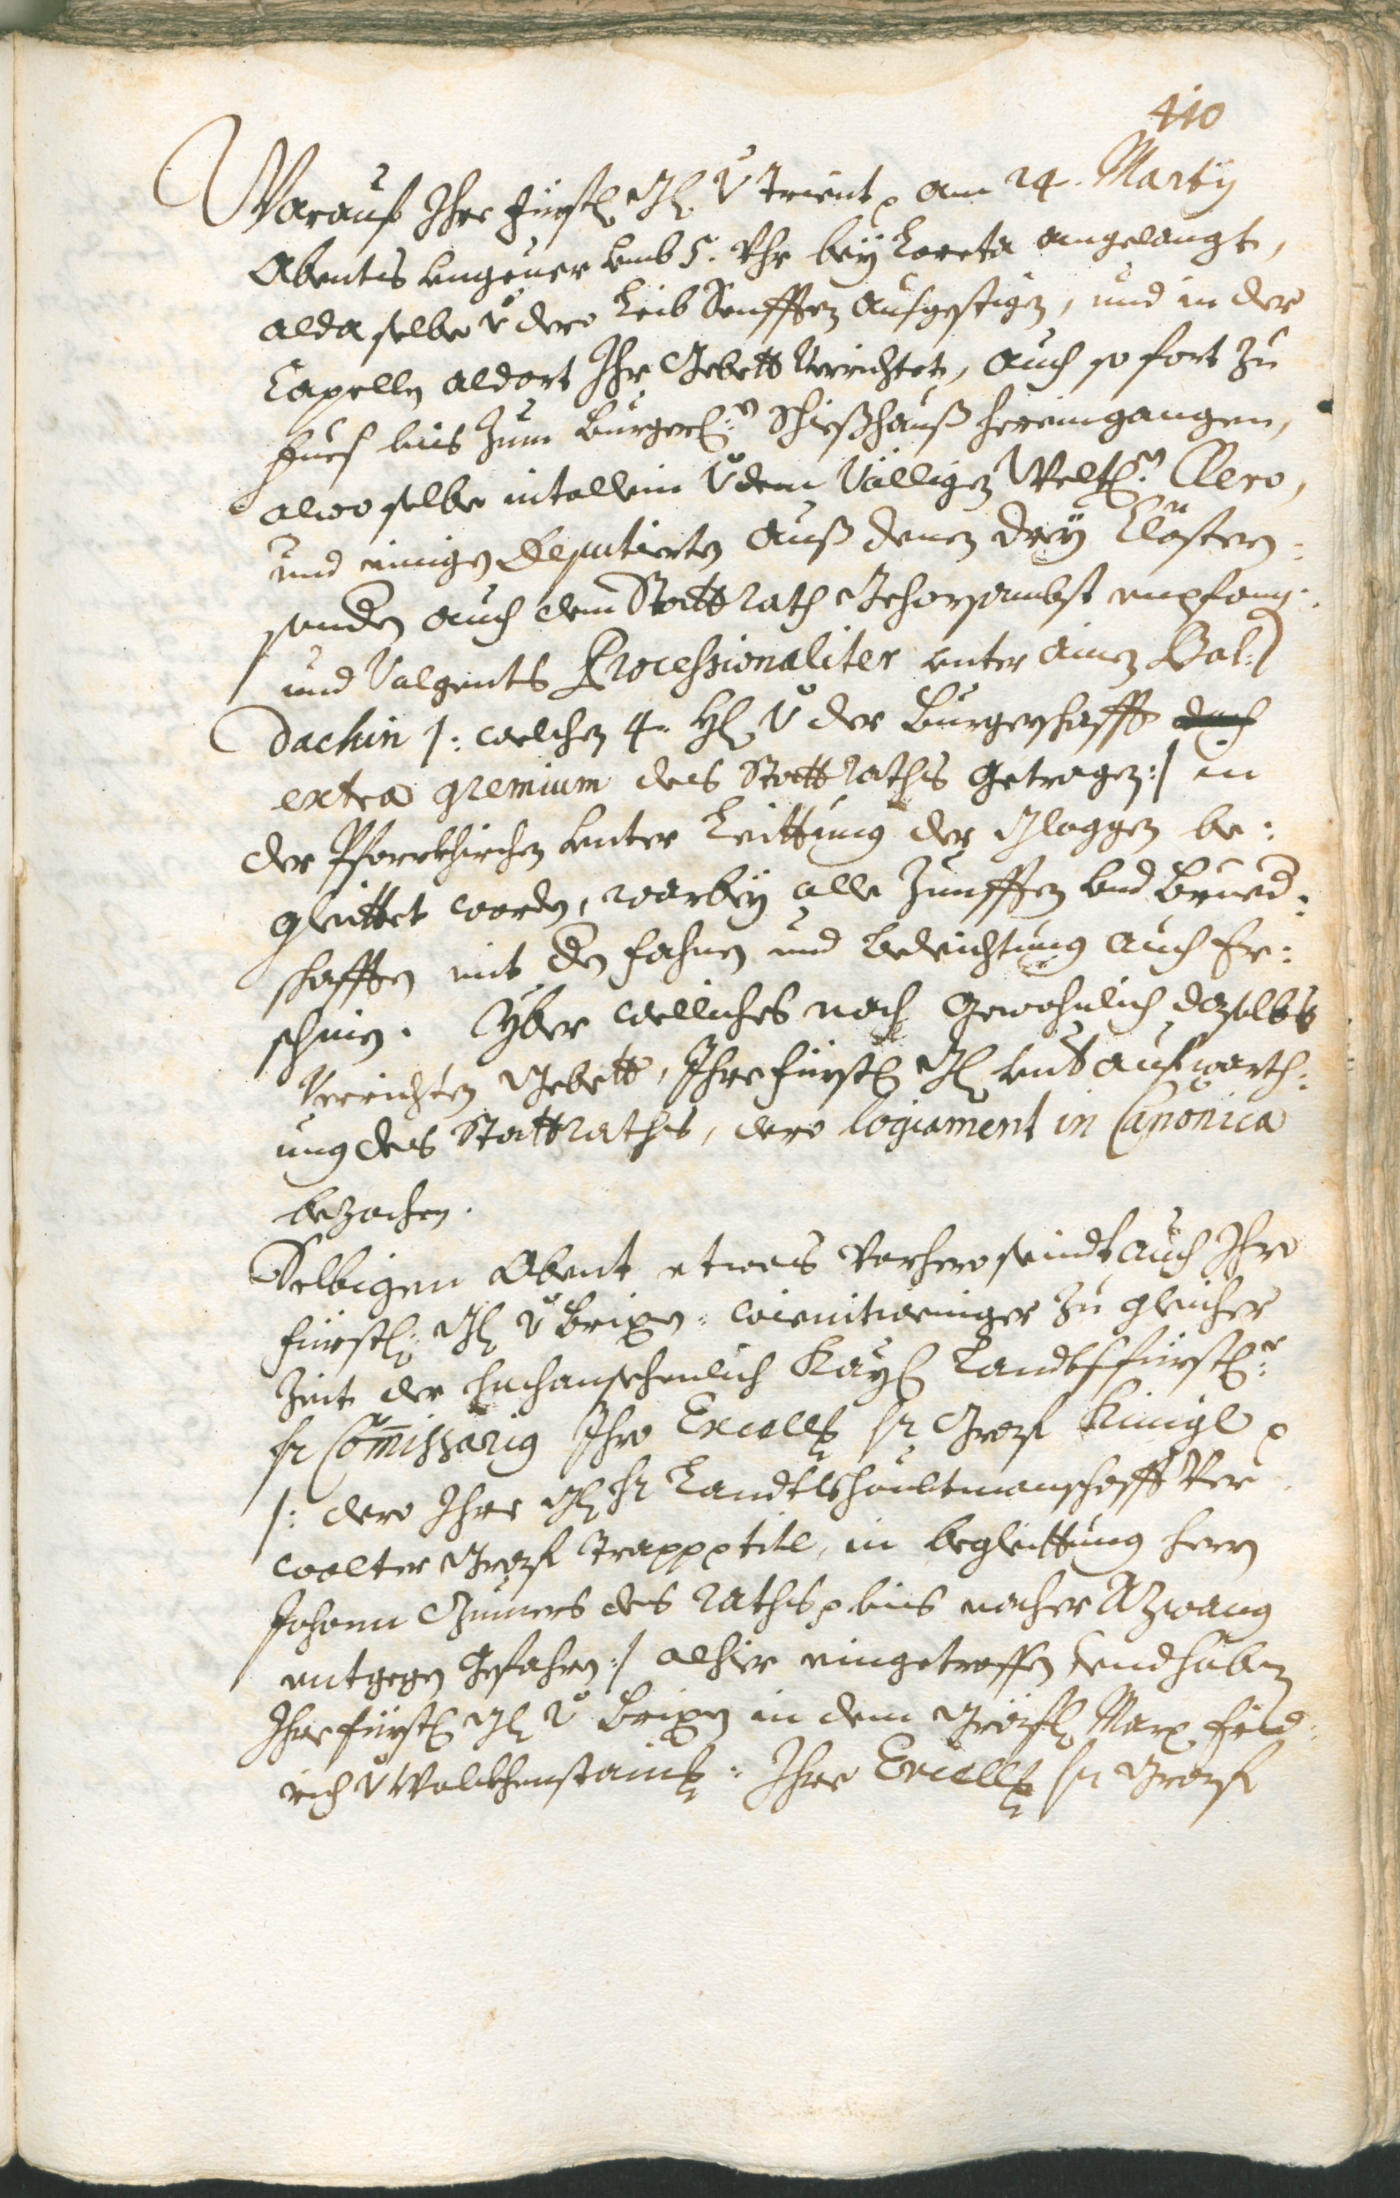 410
Warauf Ihre Fürstl: Gl: v Trient p am 24. Martij
Abents ungeuer umb 5. Uhr bey Loreta angelangt,
alda selbe v dero Leib Senfften aufgestigen, und in der
Capellen aldort Ihr Gebett verrichtet, auch so fort zu
Fues bis zum Burgerl:n Schießhauß hereingangen,
alwo selbe intallein v dem völligen Weltl:n Clero,
und einigen Deputierten auß denen drey Clöstern
sonden auch dem Stattrath Gehorsambst empfang:
und volgents Processionaliter unter ainen Bal:
dachin /: welchen 4. H: v der Burgerschafft
extra gremium des Stattraths getragen :/ in
der Pfarrkhirchen unter Leittung der Gloggen be:
gleittet worden, warbey alle Zunfften und Brued:
schafften mit den Fahnen und beleichtung auch Er:
schinen. Yber welliches nach gewohnlich daselbst
verrichten Gebett, Ihre Fürstl: Gl: unt aufwarth:
ung des Stattraths, dero logiament in Canonica
bezochen.
Selbigen Abent etwas vorhero seindt auch Ihre
Fürstl: Gl: v Brixen: wienitweniger zu gleicher
Zeit der hochansehenlich Kayl: Landtsfürstl:e
H: Comissarius Ihro Excell: H: Graf Künigl p
/: dero Ihre Gl: H: Landtshaubtmanschafft Ver
walter Graf Trapp p titl, in begleittung Herrn
Johann Gumers des Raths p bis nacher Azwang
entgegen gefahren :/ alhier eingetroffen und haben
Ihre Fürstl: Gl: v Brixen in dem Gräfl: Marx Frid:
rich v Wolkhenstainl: Ihre Excell: H: Graf